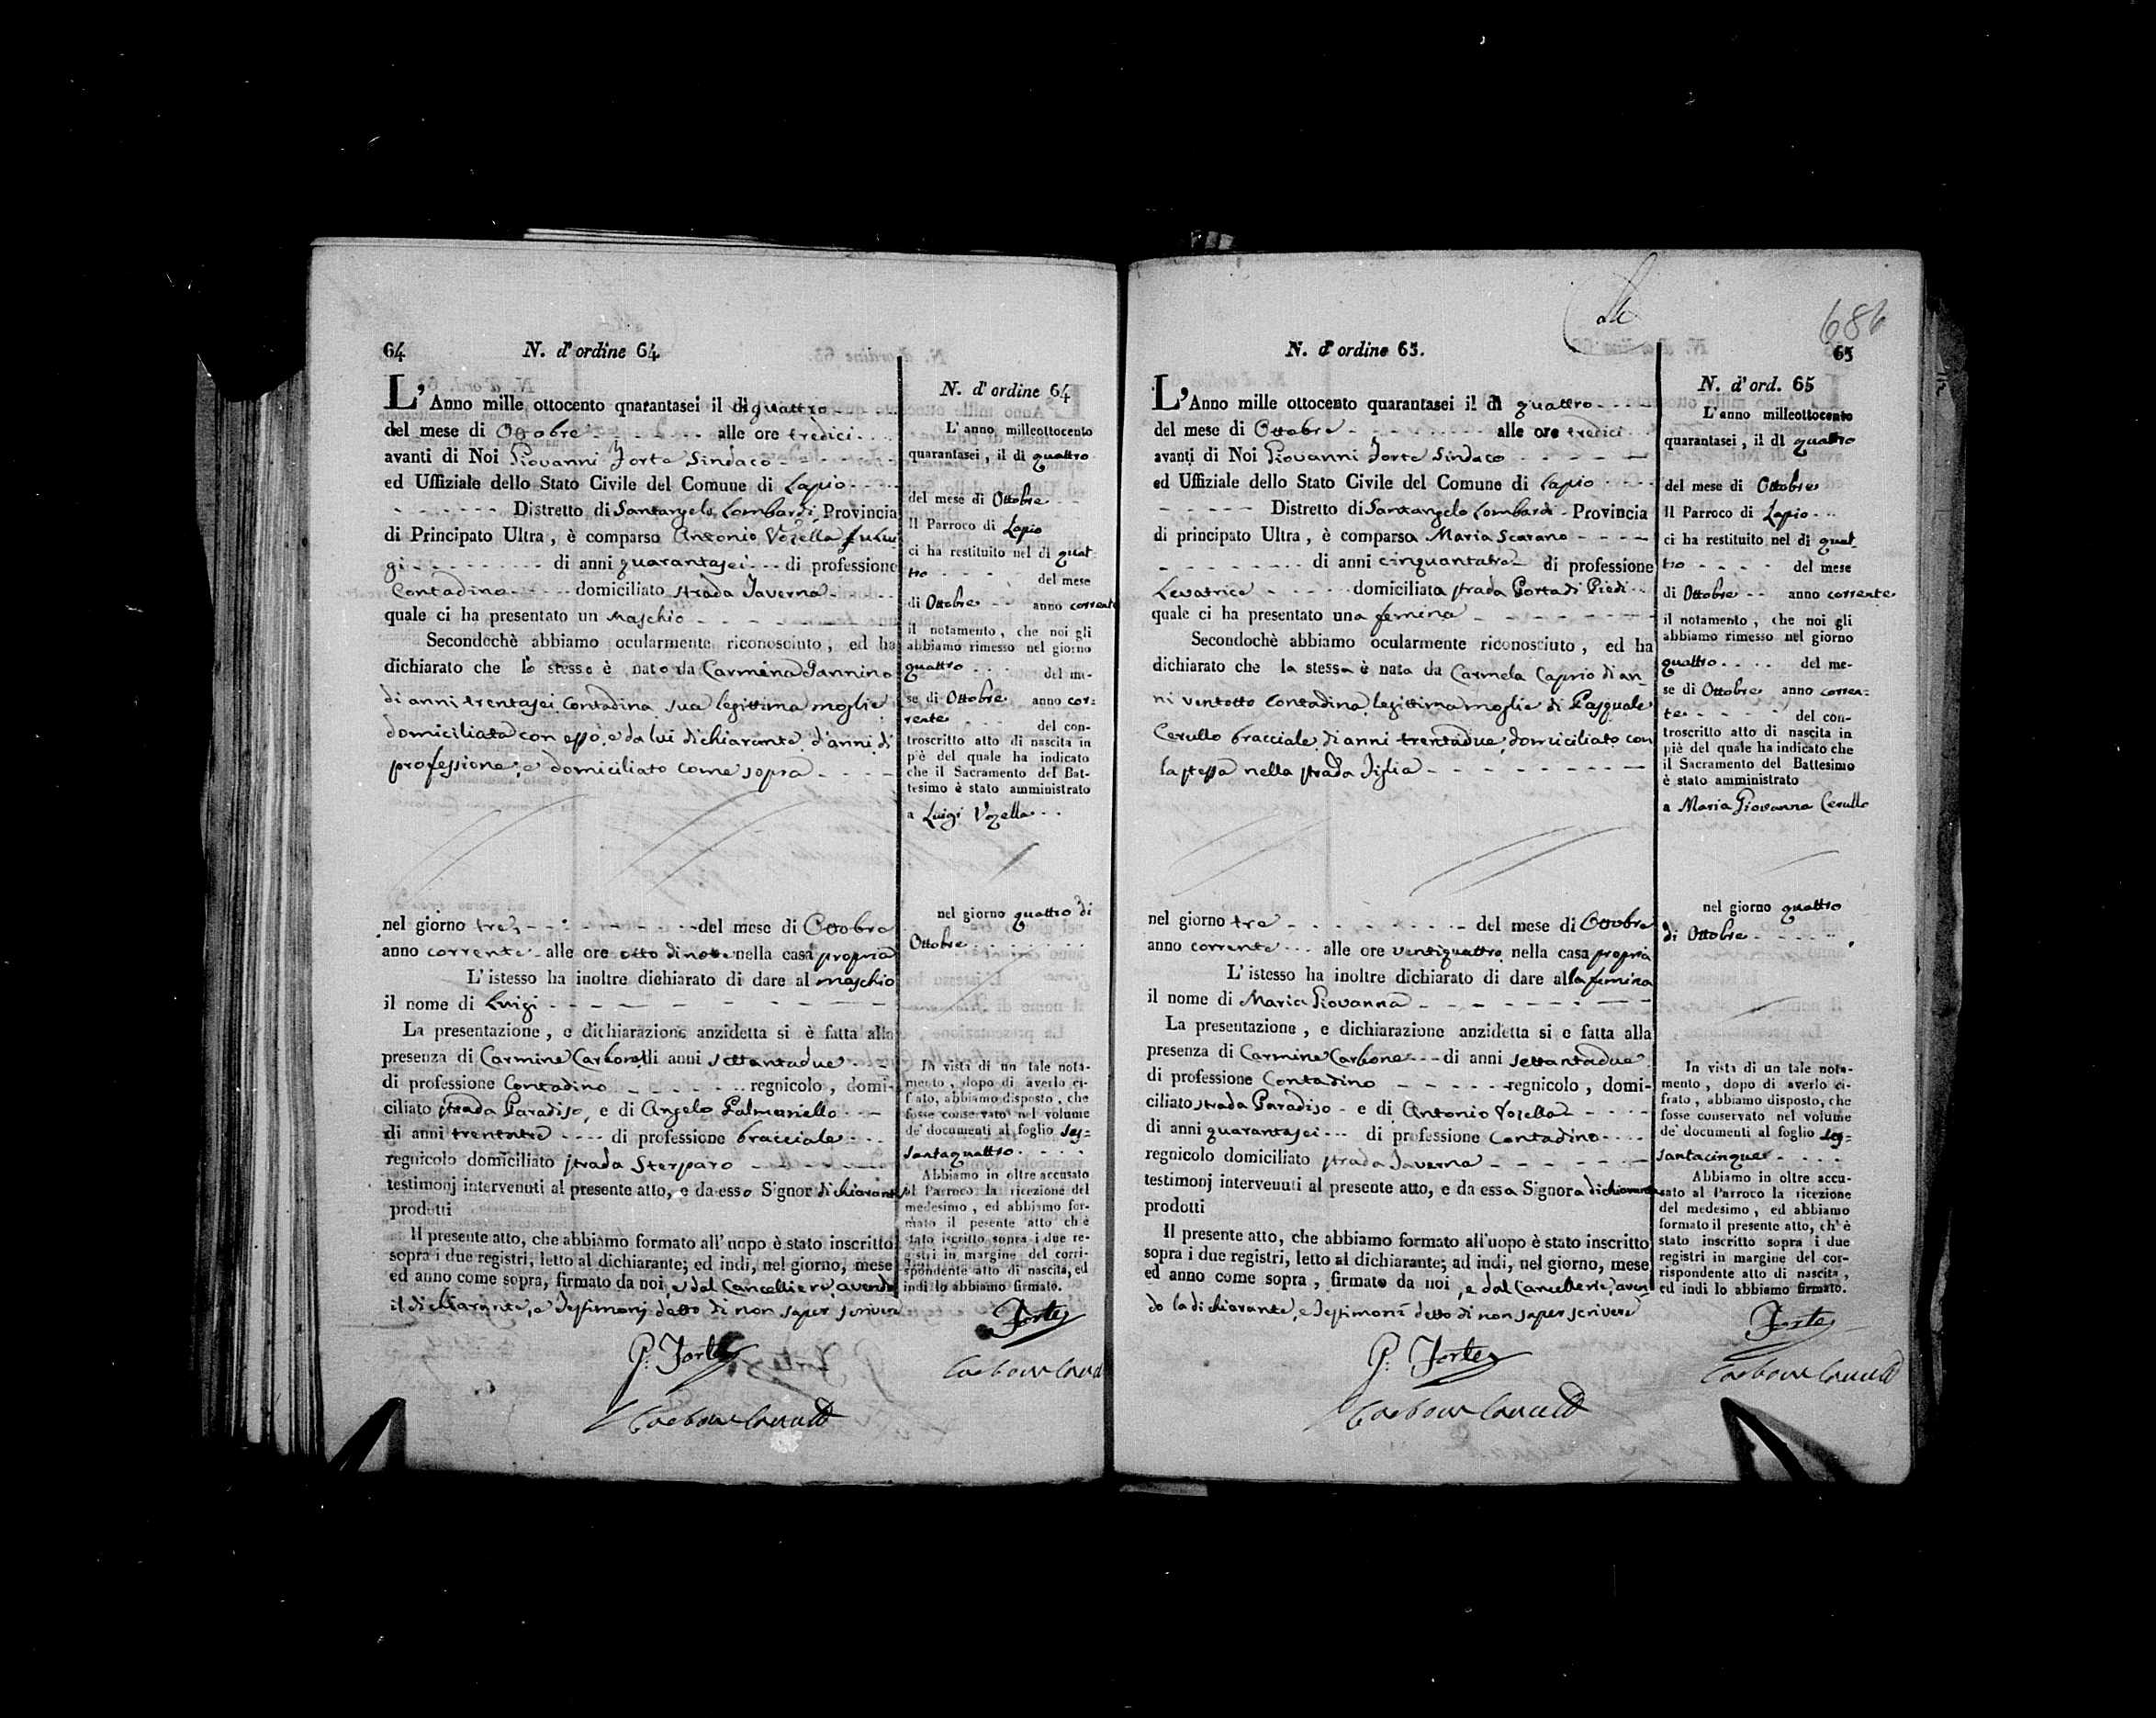 64
N. d'ordine 64
L'Anno mille ottocento quarantasei il dì quattro
del mese di Ottobre alle ore tredici
avanti di Noi Giovanni Forte Sindaco
ed Uffiziale dello Stato Civile del Comune di Lapio
Distretto di Santangelo Lombardi Provincia
di Principato Ultra, è comparso Antonio Vozella fu Lui
gi di anni quarantasei di professione
Contadino domiciliato strada Taverna
quale ci ha presentato un Maschio
Secondochè abbiamo ocularmente riconosciuto, ed ha
dichiarato che lo stesso è nato da Carmina Iannino
di anni trentasei Contadina sua legittima moglie
domiciliata con esso, e da lui dichiarante d'anni, di
professione, e domiciliato come sopra
nel giorno tre del mese di Ottobre
anno corrente alle ore otto di notte nella casa propria
L'istesso ha inoltre dichiarato di dare al maschio
il nome di Luigi
La presentazione, e dichiarazione anzidetta si è fatta alla
presenza di Carmine Carbone di anni settantadue
di professione Contadino regnicolo, domi-
ciliato strada Paradiso, e di Angelo Palmariello
di anni trentatre di professione bracciale
regnicolo domiciliato strada Sterparo
testimonj intervenuti al presente atto, e da esso Signor dichiarante
prodotti
Il presente atto, che abbiamo formato all'uopo è stato inscritto
sopra i due registri, letto al dichiarante; ed indi, nel giorno, mese
ed anno come sopra, firmato da noi, e dal Cancelliere, avendo
il dichiarante, e Testimonj detto di non saper scrivere
G: Forte
Carbone Cancell
N. d'ordine 64
L'anno milleottocento
quarantasei, il dì quattro
del mese di Ottobre
Il Parroco di Lapio
ci ha restituito nel dì quat-
tro del mese
di Ottobre anno corrente
il notamento, che noi gli
abbiamo rimesso nel giorno
quattro del me-
se di Ottobre anno cor:
rente del con-
troscritto atto di nascita in
piè del quale ha indicato
che il Sacramento del Bat-
tesimo è stato amministrato
a Luigi Vozella
nel giorno quattro di
Ottobre
In vista di un tale nota-
mento, dopo di averlo ci-
frato, abbiamo disposto, che
fosse conservato nel volume
de' documenti al foglio ses=
santaquattro
Abbiamo in oltre accusato
al Parroco la ricezione del
medesimo, ed abbiamo for-
mato il pesente atto ch'è
stato iscritto sopra i due re-
gistri in margine del corri-
spondente atto di nascita, ed
indi lo abbiamo firmato.
Forte
Carbone Canc
686
65
N. d'ordine 65.
L'Anno mille ottocento quarantasei il dì quattro
del mese di Ottobre alle ore tredici
avanti di Noi Giovanni Forte Sindaco
ed Uffiziale dello Stato Civile del Comune di Lapio
Distretto di Santangelo Lombardi Provincia
di principato Ultra, è comparsa Maria Scarano
di anni cinquantatre di professione
Levatrice domiciliata strada Porta di Piedi
quale ci ha presentato una femina
Secondochè abbiamo ocularmente riconosciuto, ed ha
dichiarato che la stessa è nata da Carmela Caprio di an-
ni ventotto Contadina legittima moglie di Pasquale
Cerullo bracciale di anni trentadue, domiciliato con
la stessa nella strada Tiglia
nel giorno tre del mese di Ottobre
anno corrente alle ore ventiquattro nella casa propria
L'istesso ha inoltre dichiarato di dare alla femina
il nome di Maria Giovanna
La presentazione, e dichiarazione anzidetta si e fatta alla
presenza di Carmine Carbone di anni settantadue
di professione Contadino regnicolo, domi-
ciliato strada Paradiso e di Antonio Vozella
di anni quarantasei di professione Contadino
regnicolo domiciliato strada Taverna
testimonj intervenuti al presente atto, e da essa Signora dichiarante
prodotti
Il presente atto, che abbiamo formato all'uopo è stato inscritto
sopra i due registri, letto al dichiarante; ad indi, nel giorno, mese
ed anno come sopra, firmato da noi, e dal Cancelliere, aven-
do la dichiarante, e Testimonî detto di non saper scrivere
G: Forte
Carbone Cancell
N. d'ord. 65
L'anno milleottocento
quarantasei, il dì quattro
del mese di Ottobre
Il Parroco di Lapio
ci ha restituito nel dì quat-
tro del mese
di Ottobre anno corrente
il notamento, che noi gli
abbiamo rimesso nel giorno
quattro del me-
se di Ottobre anno corren=
te del con-
troscritto atto di nascita in
piè del quale ha indicato che
il Sacramento del Battesimo
è stato amministrato
a Maria Giovanna Cerullo
nel giorno quattro
di Ottobre
In vista di un tale nota-
mento, dopo di averlo ci-
frato, abbiamo disposto, che
fosse conservato nel volume
de' documenti al foglio ses=
santacinque
Abbiamo in oltre accu-
sato al Parroco la ricezione
del medesimo, ed abbiamo
formato il presente atto, ch'è
stato inscritto sopra i due
registri in margine del cor-
rispondente atto di nascita,
ed indi lo abbiamo firmato.
Forte
Carbone Cancell